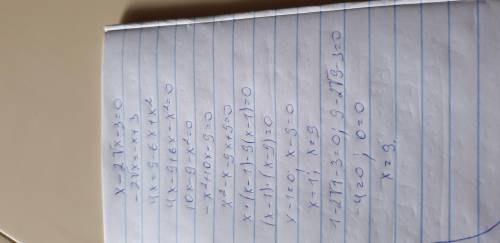 x-2√x-3=0
-2√x=-x+3
4x=9-6x+x²
4x-9+6x-x²=0
10x-9-x²=0
-x²+10x-9=0
x²-x-9x+9=0
x*(x-1)-9(x-1)=0
(x-1)*(x-9)=0
x-1=0; x-9=0
x=1; x=9
1-2√1-3=0; 9-2√9-3=0
-4=0; 0=0
x=9